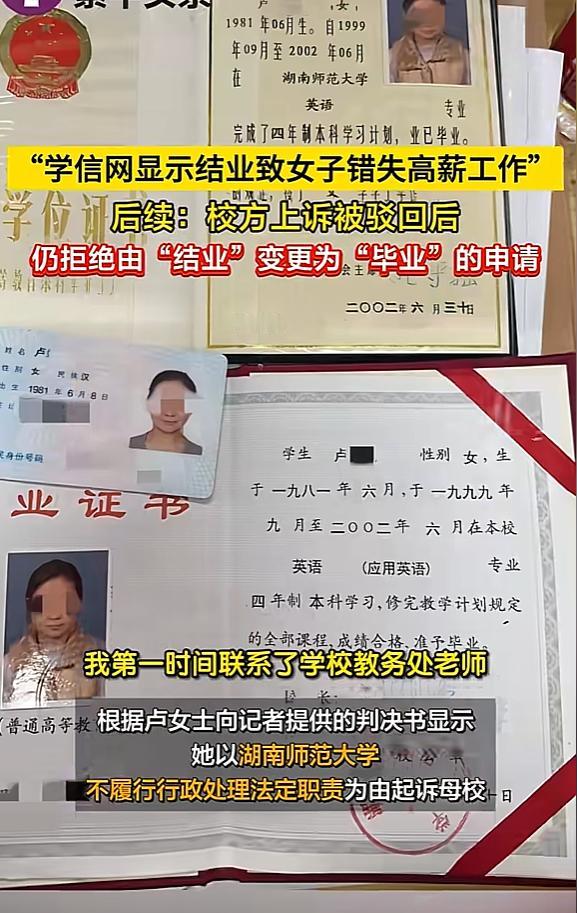 1981年06月生。自1999
年09月至2002年06月
在 湖南师范大学
英语 专业
完成了四年制本科学习计划，业已毕业。
“学信网显示结业致女子错失高薪工作”
学位证书
后续：校方上诉被驳回后
仍拒绝由“结业”变更为“毕业”的申请
二〇〇二年六月三十日
姓名 卢
性别 女 民族 汉
出生 1981年6月8日
民身份号码
业证书
学生 卢 性别 女，生
于一九八一年六月，于一九九九年
九月至二〇〇二年六月在本校
英语 （应用英语） 专业
四年制本科学习，修完教学计划规定
的全部课程，成绩合格，准予毕业。
我第一时间联系了学校教务处老师
校长：
（普通高等教
根据卢女士向记者提供的判决书显示
她以湖南师范大学
不履行行政处理法定职责为由起诉母校
日